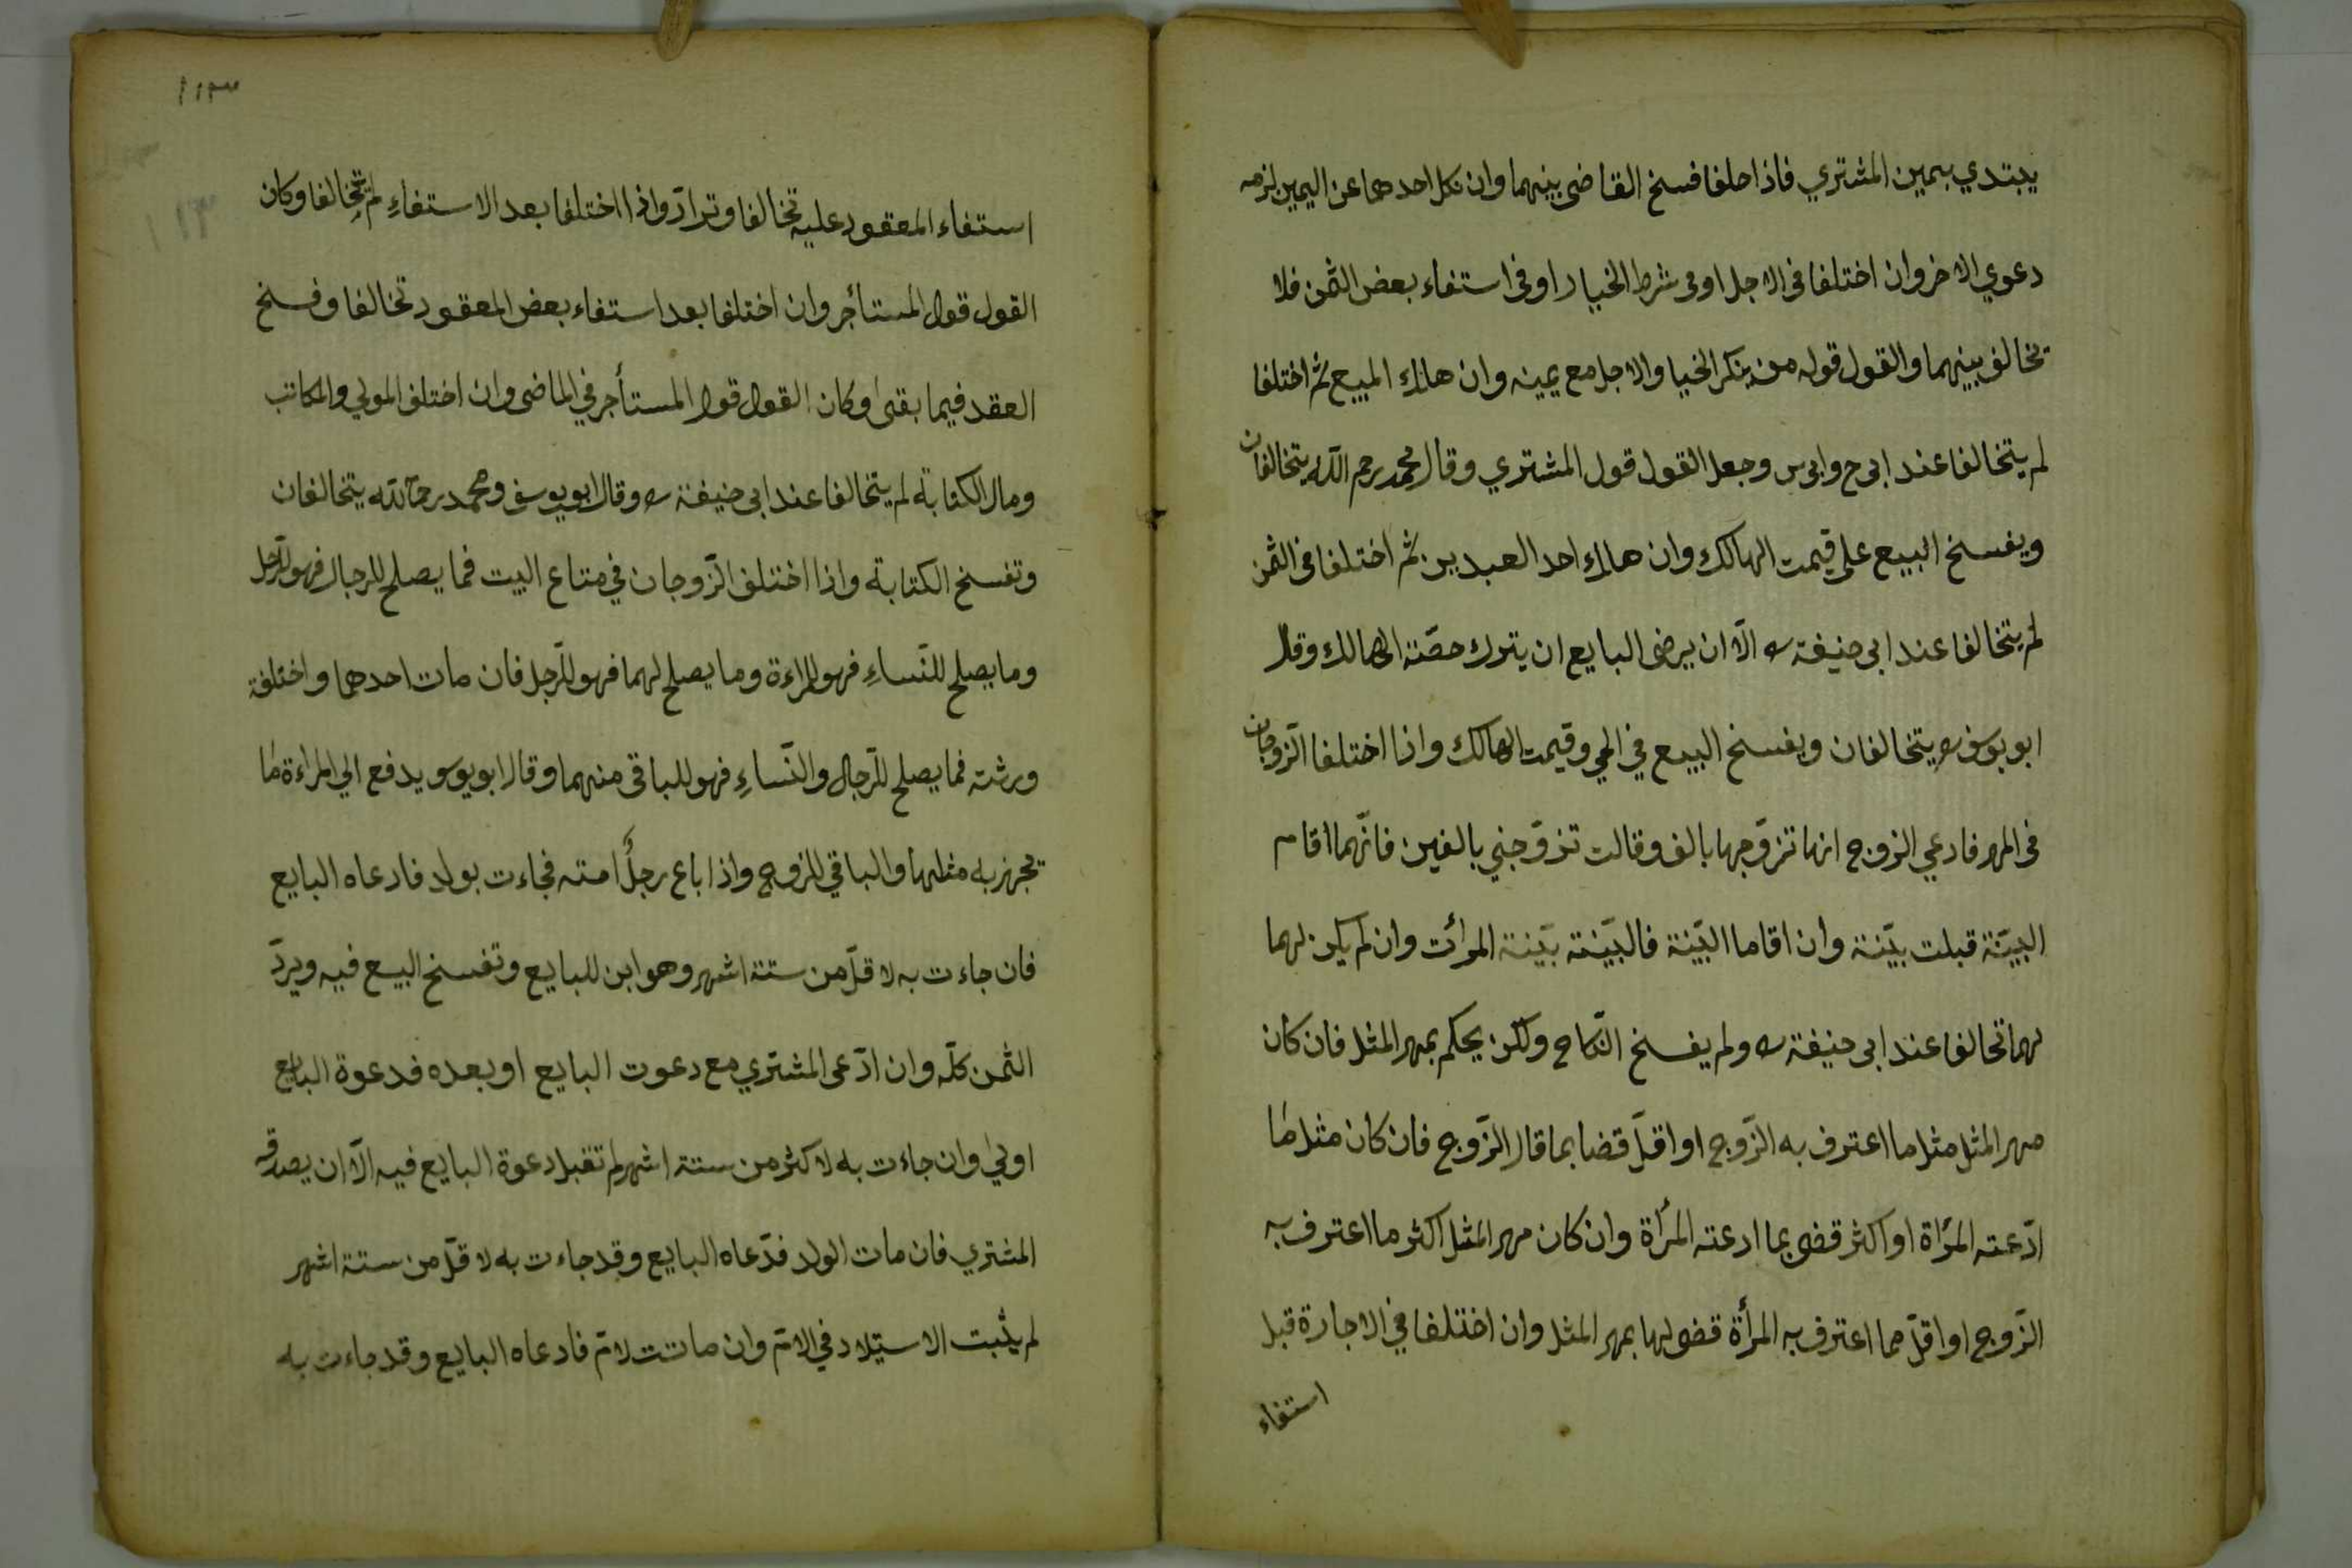 يبتدي بيمين المشتري فاذا حلفا فسخ القاضى بينهما وان نكل احدهما عن اليمين لزمه
دعوي الاخر وان اختلفا فى الاجل او فى شرط الخيار او فى استفاء بعض الثمن فلا
تخالف بينهما والقول قوله من ينكر الخيا والاجل مع يمينه وان هلك المبيع ثم اختلفا
لم يتخالفا عند ابى ح وابى س وجعل القول قول المشتري وقال محمد رحم الله يتخالفان
ويفسخ البيع على قيمت الهالك وان هلك احد العبدين ثم اختلفا فى الثمن
لم يتخالفا عند ابى حنيفة ره الّا ان يرضى البايع ان يترك حصّة الهالك وقال
ابو يوسف ره يتخالفان ويفسخ البيع في الحي وقيمت الهالك واذا اختلفا الزّوجان
فى المهر فادعي الزوج انها تزوّجها بالف وقالت تزوّجني بالفين فانّهما اقام
البيّنة قبلت بيّنة وان اقاما البيّنة فالبيّنة بيّنة المرأت وان لم يكن لهما
لهما تحالفا عند ابى حنيفة ره ولم يفسخ النّكاح ولكن يحكم بمهر المثل فان كان
مهر المثل مثل ما اعترف به الزّوج او اقلّ قضا بما قال الزّوج فان كان مثل ما
ادّعته المرأة او اكثر قضى بما ادعته المرأة وان كان مهر المثل اكثر ما اعترف به
الزّوج او اقلّ مما اعترف به المرأة قضى لها بمهر المثل وان اختلفا في الاجارة قبل
استفاء
١١٣
١١٣
استفاء المعقود عليه تخالفا وترادّ واذا اختلفا بعد الاستفاءِ لم يتخالفا وكان
القول قول المستأجر وان اختلفا بعد استفاء بعض المعقود تخالفا وفسخ
العقد فيما بقى وكان القول قول المستأجر في الماضى وان اختلف المولي والمكاتب
ومال الكتابة لم يتخالفا عند ابى حنيفة ره وقال ابو يوسف ومحمد رحمه الله يتخالفان
وتفسخ الكتابة واذا اختلف الزّوجان في متاع البيت فما يصلح للرجال فهو للرّجل
وما يصلح للنّساءِ فهو للمراءة وما يصلح لهما فهو للرّجل فان مات احدهما واختلفة
ورثته فما يصلح للرّجال والنّساءِ فهو للباقى منهما وقال ابو يوسو يدفع الي المراءة ما
تجهز به مثلها والباقي للزوج واذا باع رجلٌ امته فجاءت بولد فادعاه البايع
فان جاءت به لاقلّ من ستة اشهر وهو ابن للبايع وتفسخ البيع فيه ويردّ
الثّمن كلّه وان ادّعى المشتري مع دعوت البايع او بعده فدعوة البايع
اولي وان جاءت به لاكثر من ستة اشهر لم تقبل دعوة البايع فيه الّا ان يصدقه
المشتري فان مات الولد فدّعاه البايع وقد جاءت به لاقلّ من ستة اشهر
لم يثبت الاستيلاد في الامّ وان ماتت لامّ فادعاه البايع وقد جاءت به